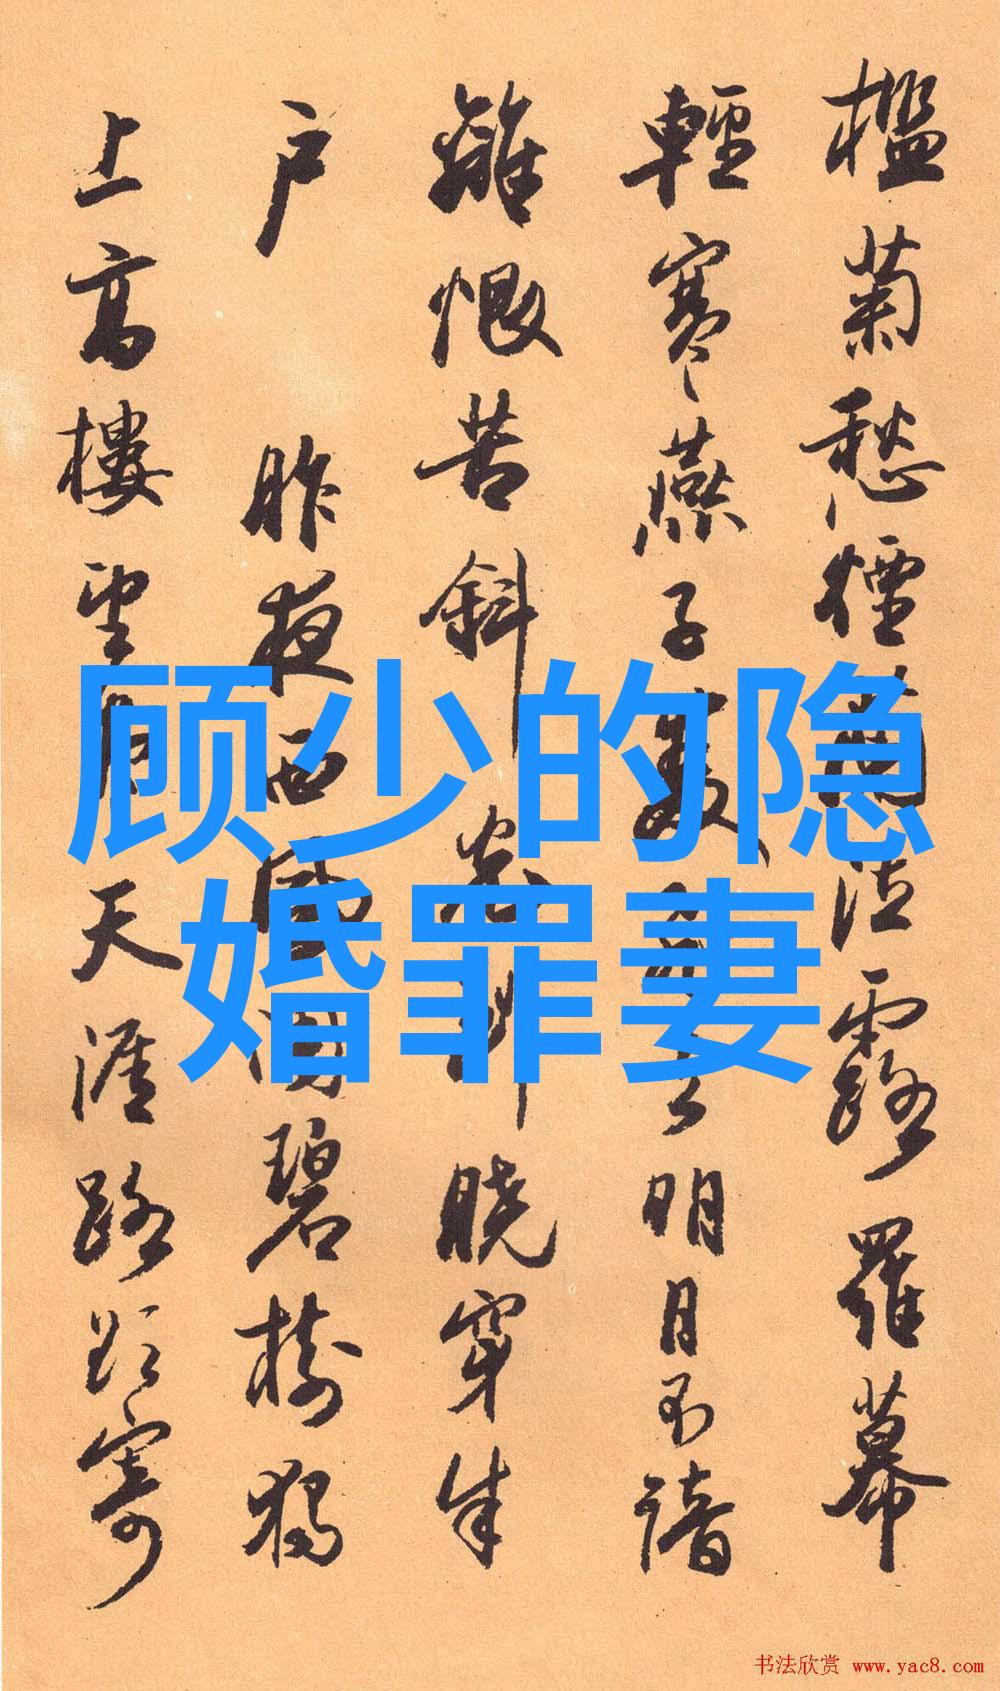 檻菊愁煙蘭泣露羅幕
輕寒燕子雙飛去明月不諳
離恨苦斜到曉穿朱
户 昨夜西風凋碧樹獨
上高樓望天涯路欲寄
顾少的隐
婚罪妻
书法欣赏 www.yac8.com